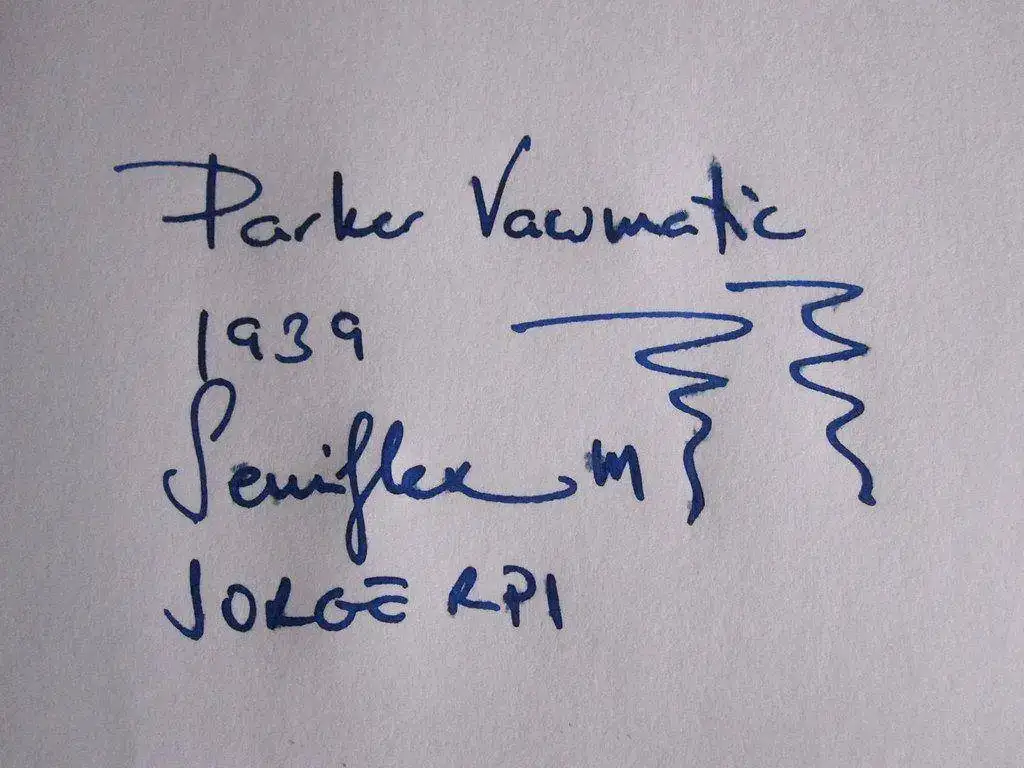 Parker Vacumatic
1939
Semiflex m
JORGE RPI